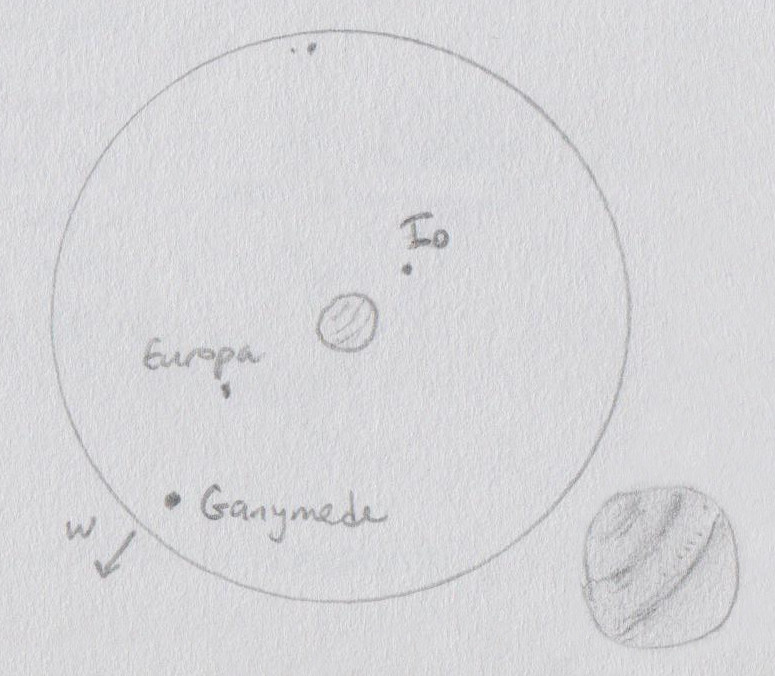 Io
Europa
Ganymede
W